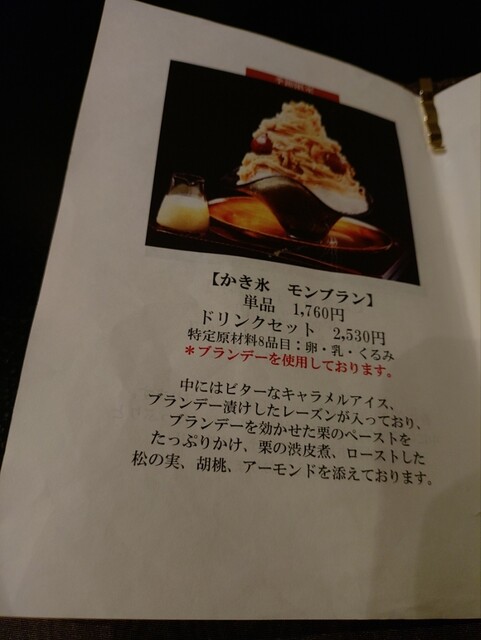 季節限定
【かき氷　モンブラン】
単品　1,760円
ドリンクセット　2,530円
特定原材料8品目：卵・乳・くるみ
＊ブランデーを使用しております。
中にはビターなキャラメルアイス、
ブランデー漬けしたレーズンが入っており、
ブランデーを効かせた栗のペーストを
たっぷりかけ、栗の渋皮煮、ローストした
松の実、胡桃、アーモンドを添えております。